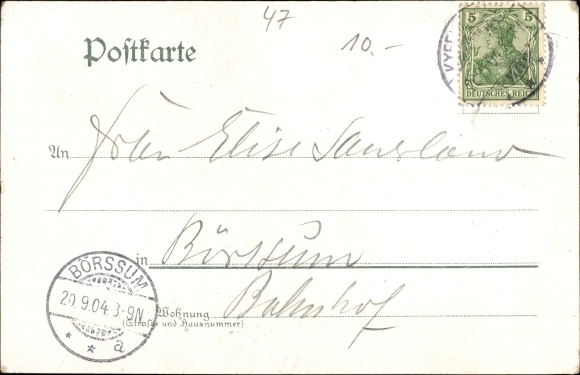 47
10.-
Postkarte
5 5
DEUTSCHES REICH
An Frau Elise Sauerland
in Börssum
BÖRSSUM
20.9.04. 3-9N
* * a
Wohnung Bahnhof
(Straße und Hausnummer)